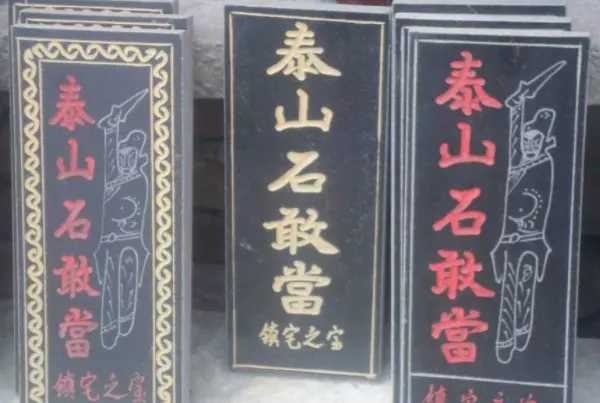 泰山石敢當
镇宅之宝
泰山石敢當
镇宅之宝
泰山石敢當
镇宅之